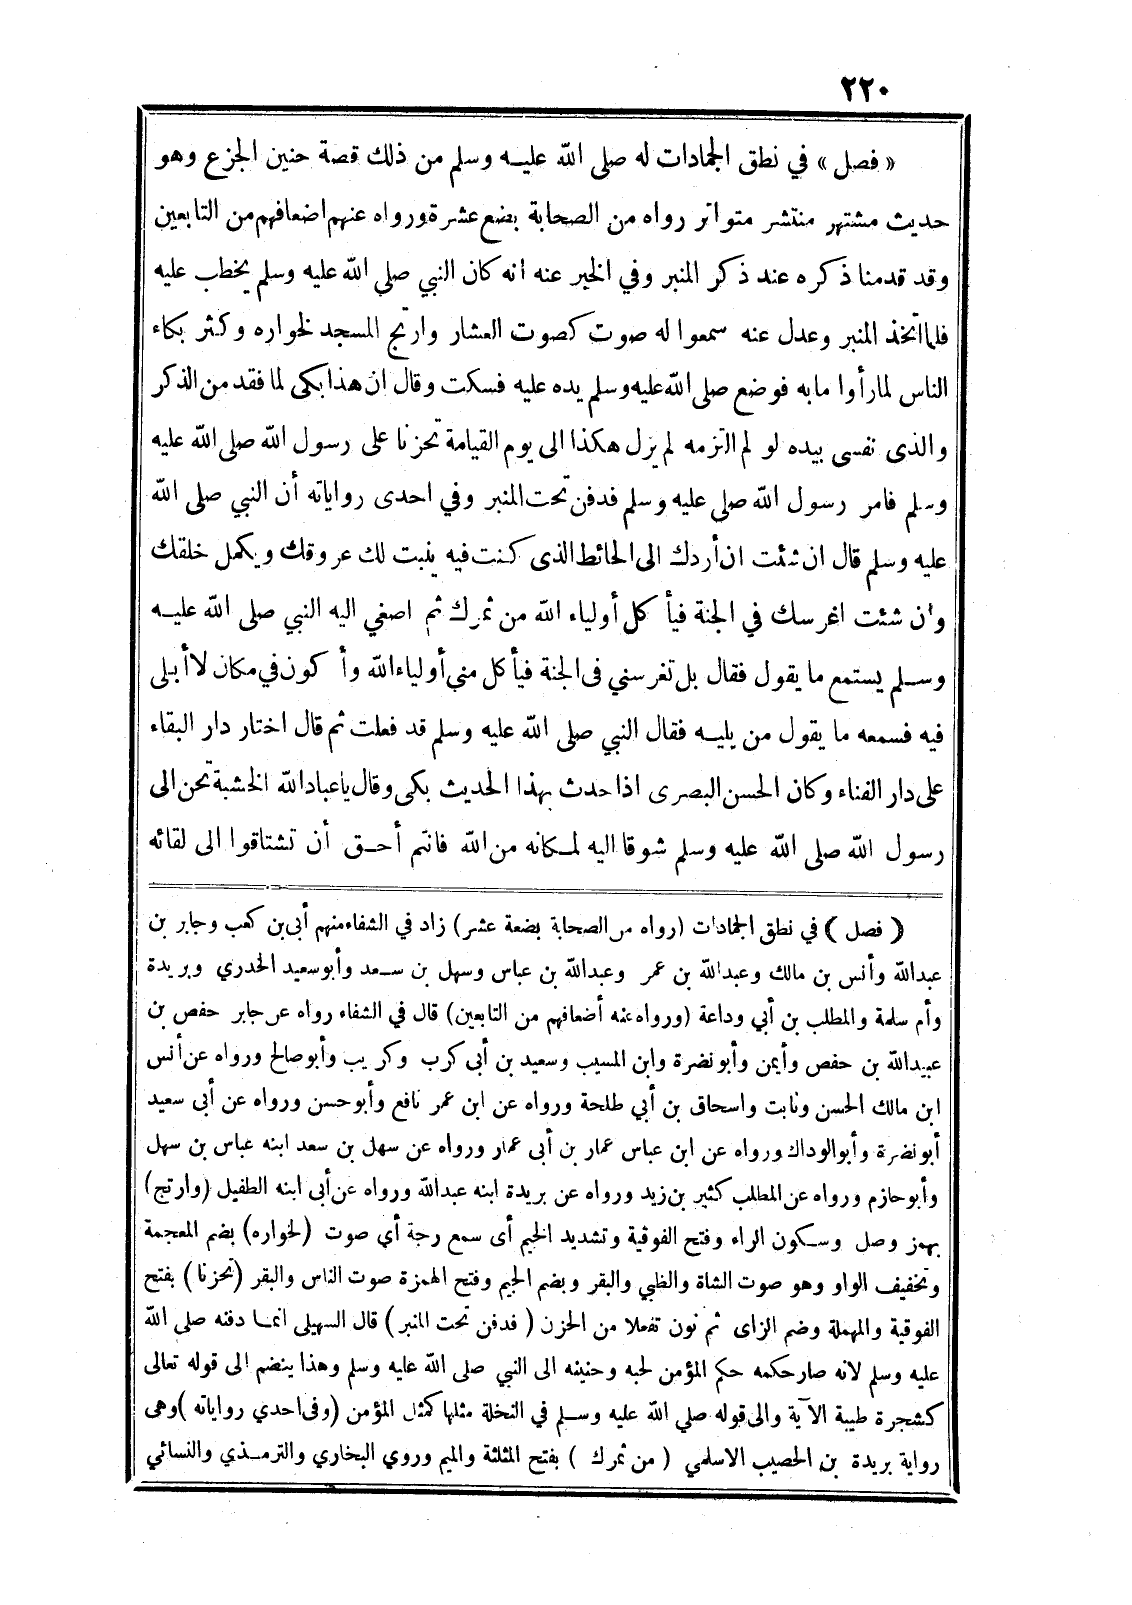 ٢٢٠
« فصل » في نطق الجمادات له صلى الله عليه وسلم من ذلك قصة حنين الجزع وهو
حديث مشتهر منتشر متواتر رواه من الصحابة بضع عشرة ورواه عنهم اضعافهم من التابعين
وقد قدمنا ذكره عند ذكر المنبر وفي الخبر عنه انه كان النبي صلى الله عليه وسلم يخطب عليه
فلما اتخذ المنبر وعدل عنه سمعوا له صوت كصوت العشار وارتج المسجد لخواره وكثر بكاء
الناس لما رأوا ما به فوضع صلى الله عليه وسلم يده عليه فسكت وقال ان هذا بكى لما فقد من الذكر
والذى نفسى بيده لو لم التزمه لم يزل هكذا الى يوم القيامة تحزنا على رسول الله صلى الله عليه
وسلم فامر رسول الله صلى عليه وسلم فدفن تحت المنبر وفي احدى رواياته أن النبي صلى الله
عليه وسلم قال ان شئت ان أردك الى الحائط الذى كنت فيه ينبت لك عروقك ويكمل خلقك
وان شئت اغرسك في الجنة فيأكل أولياء الله من ثمرك ثم اصغي اليه النبي صلى الله عليه
وسلم يستمع ما يقول فقال بل تغرسني فى الجنة فيأكل مني أولياء الله وأكون في مكان لا أبلى
فيه فسمعه ما يقول من يليه فقال النبي صلى الله عليه وسلم قد فعلت ثم قال اختار دار البقاء
على دار الفناء وكان الحسن البصرى اذا حدث بهذا الحديث بكى وقال يا عباد الله الخشبة تحن الى
رسول الله صلى الله عليه وسلم شوقا اليه لمكانه من الله فانتم أحق أن تشتاقوا الى لقائه
( فصل ) في نطق الجمادات (رواه من الصحابة بضعة عشر) زاد في الشفاء منهم أبي بن كعب وجابر بن
عبدالله وأنس بن مالك وعبدالله بن عمر وعبدالله بن عباس وسهل بن سعد وأبو سعيد الخدري وبريدة
وأم سلمة والمطلب بن أبي وداعة (ورواه عنه أضعافهم من التابعين) قال في الشفاء رواه عن جابر حفص بن
عبيدالله بن حفص وأيمن وأبو نضرة وابن المسيب وسعيد بن أبى كرب وكريب وأبو صالح ورواه عن أنس
ابن مالك الحسن وثابت واسحاق بن أبي طلحة ورواه عن ابن عمر نافع وأبو حسن ورواه عن أبى سعيد
أبو نضرة وأبو الوداك ورواه عن ابن عباس عمار بن أبى عمار ورواه عن سهل بن سعد ابنه عباس بن سهل
وأبو حازم ورواه عن المطلب كثير بن زيد ورواه عن بريدة ابنه عبدالله ورواه عن أبى ابنه الطفيل (وارتج)
بهمز وصل وسكون الراء وفتح الفوقية وتشديد الخيم أى سمع رجة أي صوت (لخواره) بضم المعجمة
وتخفيف الواو وهو صوت الشاة والظبي والبقر وبضم الجيم وفتح الهمزة صوت الناس والبقر (تحزنا) بفتح
الفوقية والمهملة وضم الزاى ثم نون تفعلا من الحزن ( فدفن تحت المنبر ) قال السهيلى انما دفنه صلى الله
عليه وسلم لانه صار حكمه حكم المؤمن لحبه وحنينه الى النبي صلى الله عليه وسلم وهذا ينضم الى قوله تعالى
كشجرة طيبة الآية والى قوله صلى الله عليه وسلم في النخلة مثلها كمثل المؤمن (وفى احدي رواياته )وهى
رواية بريدة بن الحصيب الاسلمي ( من ثمرك ) بفتح المثلثة والميم وروي البخاري والترمذي والنسائي